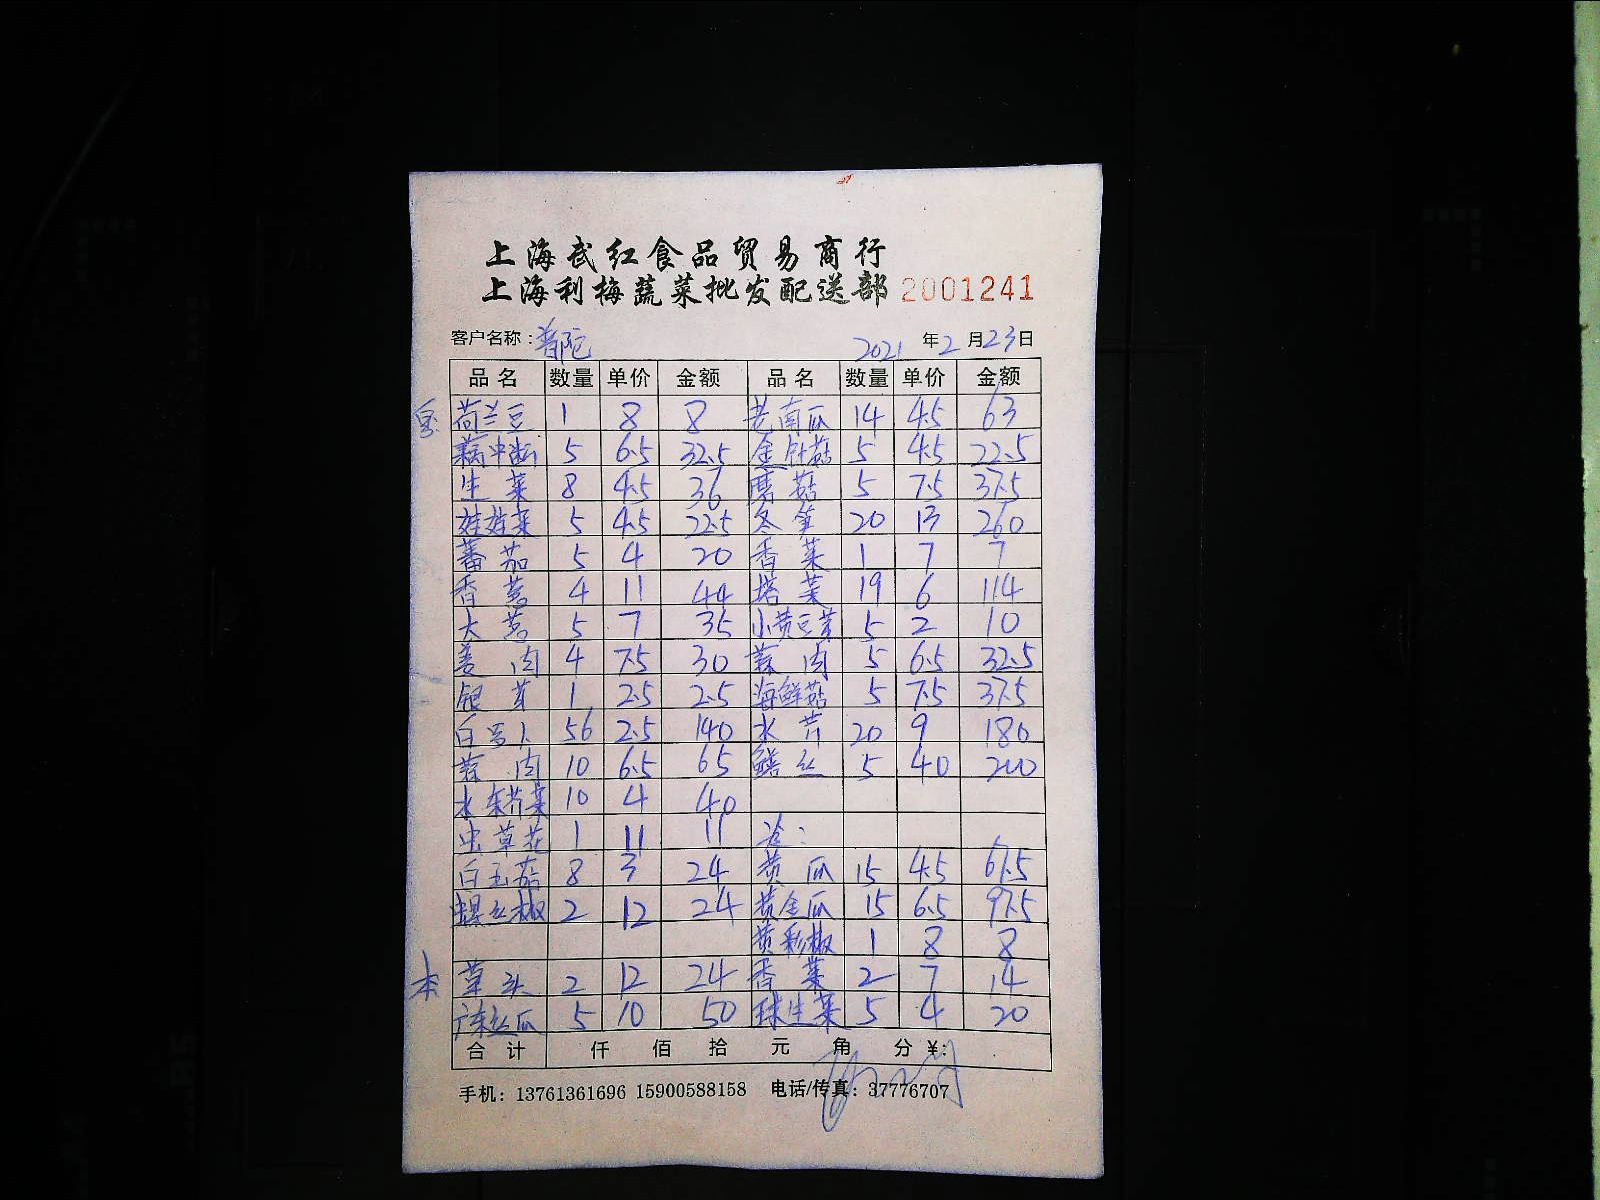 上海武红食品贸易商行
上海利梅蔬菜批发配送部 2001241
客户名称：普陀 2021年2月23日
品名 数量 单价 金额 品名 数量 单价 金额
荷兰豆 1 8 8 老南瓜 14 4.5 63
藕中段 5 6.5 32.5 金针菇 5 4.5 22.5
生菜 8 4.5 36 蘑菇 5 7.5 37.5
娃娃菜 5 4.5 22.5 冬笋 20 13 260
蕃茄 5 4 20 香菜 1 7 7
香葱 4 11 44 塔菜 19 6 114
大葱 5 7 35 小黄豆芽 5 2 10
姜肉 4 7.5 30 蒜肉 5 6.5 32.5
银芽 1 2.5 2.5 海鲜菇 5 7.5 37.5
白萝卜 56 2.5 140 水芹 20 9 180
蒜肉 10 6.5 65 鳝丝 5 40 200
水东芥菜 10 4 40
虫草花 1 11 11 冷：
白玉菇 8 3 24 黄瓜 15 4.5 67.5
螺丝椒 2 12 24 黄金瓜 15 6.5 97.5
黄彩椒 1 8 8
本 草头 2 12 24 香菜 2 7 14
广东丝瓜 5 10 50 球生菜 5 4 20
合计 仟 佰 拾 元 角 分 ¥:
手机：13761361696 15900588158 电话/传真：37776707